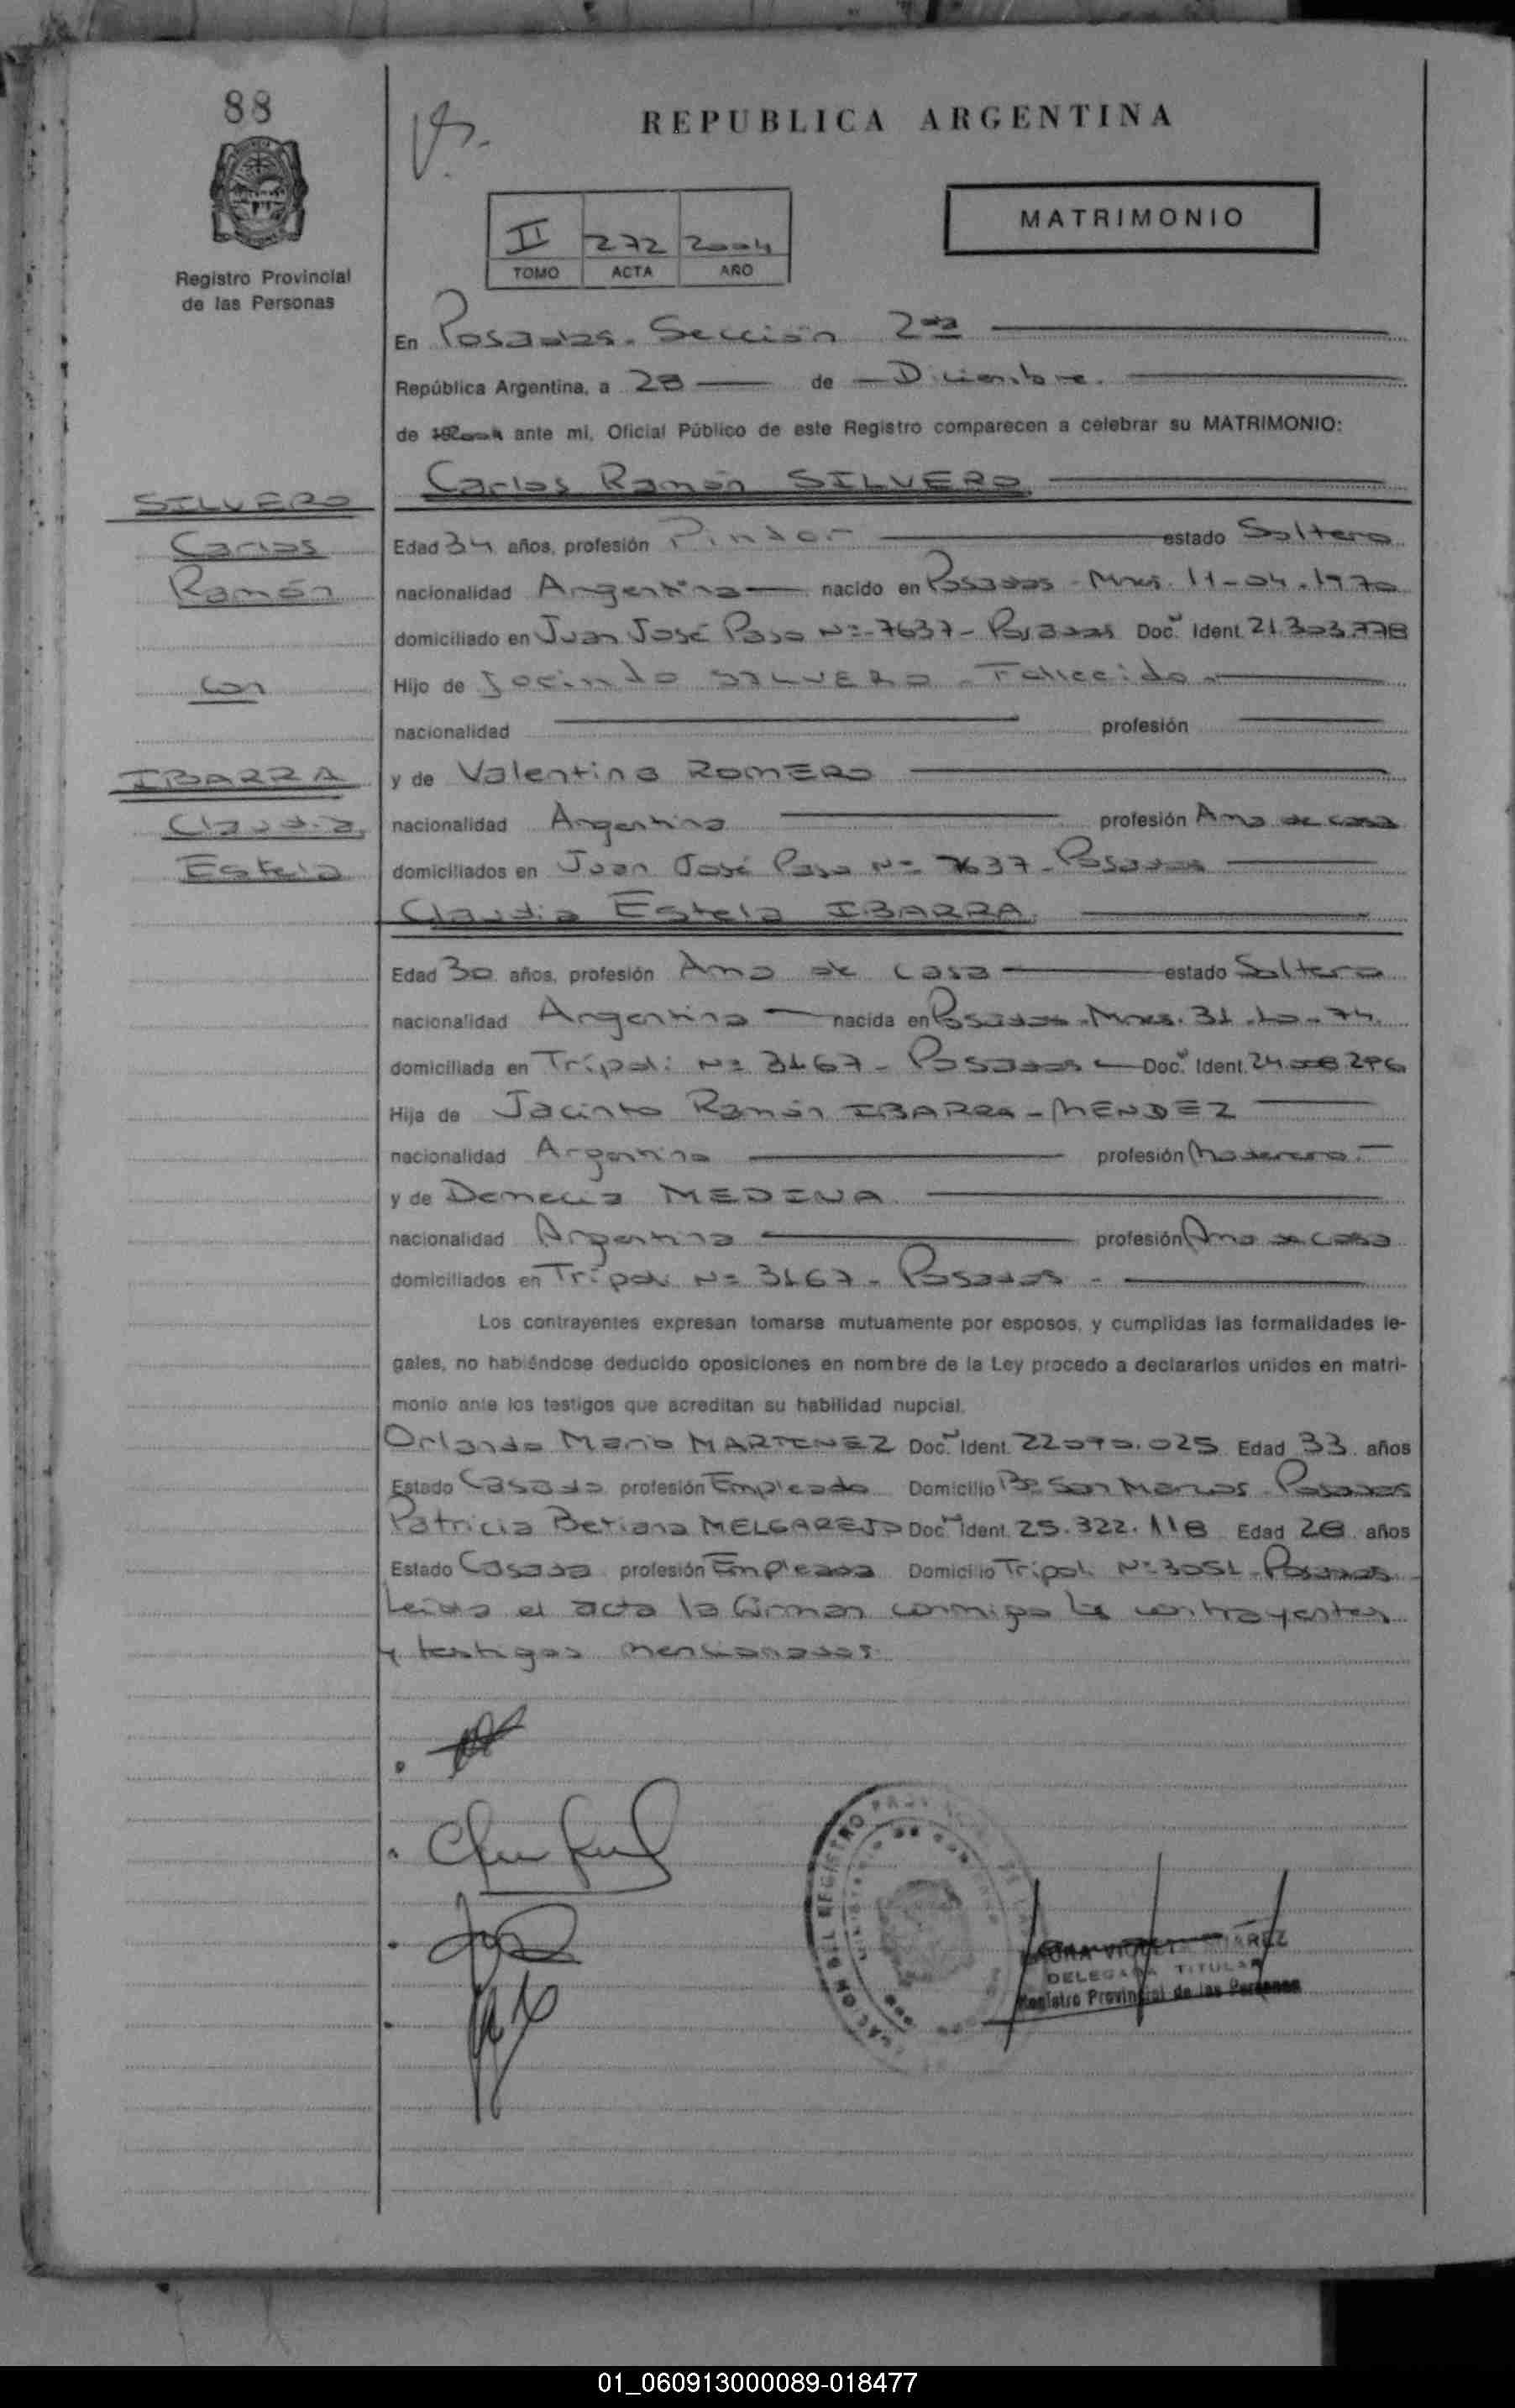 88
REPUBLICA ARGENTINA
MATRIMONIO
II 272 2004
TOMO ACTA AÑO
Registro Provincial
de las Personas
En Posadas. Sección 2da
República Argentina, a 28 de Diciembre.
de 2004 ante mi, Oficial Público de este Registro comparecen a celebrar su MATRIMONIO:
SILVERO
Carlos
Ramón
con
IBARRA
Claudia
Estela
Carlos Ramón SILVERO
Edad 34 años, profesión Pintor estado Soltero
nacionalidad Argentina nacido en Posadas - Mnes. 11-04-1970
domiciliado en Juan José Paso Nº 7637 - Posadas Doc. Ident. 21.303.778
Hijo de SILVERO - Fallecido
nacionalidad profesión
y de Valentina ROMERO
nacionalidad Argentina profesión Ama de casa
domiciliados en Juan José Paso Nº 7637 - Posadas
Claudia Estela IBARRA
Edad 30 años, profesión Ama de casa estado Soltera
nacionalidad Argentina nacida en Posadas - Mnes. 31-10-74
domiciliada en Trípoli Nº 3167 - Posadas Doc. Ident.
Hija de Jacinto Ramón IBARRA - MENDEZ
nacionalidad Argentina profesión
y de Demecia MEDINA
nacionalidad Argentina profesión Ama de casa
domiciliados en Trípoli Nº 3167 - Posadas -
Los contrayentes expresan tomarse mutuamente por esposos, y cumplidas las formalidades le-
gales, no habiéndose deducido oposiciones en nombre de la Ley procedo a declararlos unidos en matri-
monio ante los testigos que acreditan su habilidad nupcial.
Orlando Mario MARTINEZ Doc. Ident. 22.090.025 Edad 33 años
Estado Casado profesión Empleado Domicilio Bº San Marcos - Posadas
Patricia Betiana MELGAREJO Doc. Ident. 25.322.118 Edad 28 años
Estado Casada profesión Empleada Domicilio Trípoli Nº 3051 - Posadas
Leída el acta la firman conmigo los contrayentes
y testigos mencionados.
SUAREZ
DELEGADA TITULAR
Registro Provincial de las Personas
01_060913000089-018477